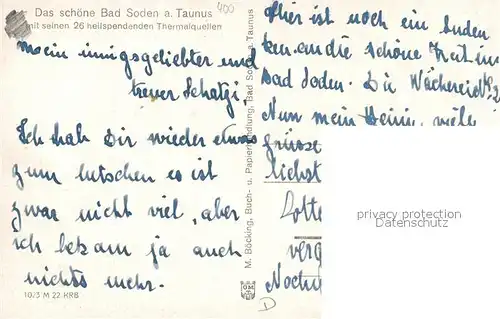 Das schöne Bad Soden a. Taunus
mit seinen 26 heilspendenden Thermalquellen
400
Mein innigsgeliebter und
treuer Schatzi.
Ich hab Dir wieder etwas
zum lutschen es ist
zwar nicht viel, aber
ich bekam ja auch
nichts mehr.
10/3 M 22 KRB
M. Böcking, Buch- u. Papierhandlung, Bad Soden a. Taunus
Hier ist noch ein Anden
ken an die schöne Zeit in
Bad Soden. Die
Nun mein Heini, viele
Grüsse
liebst
Lotte
verg
Noch
D
privacy protection
Datenschutz